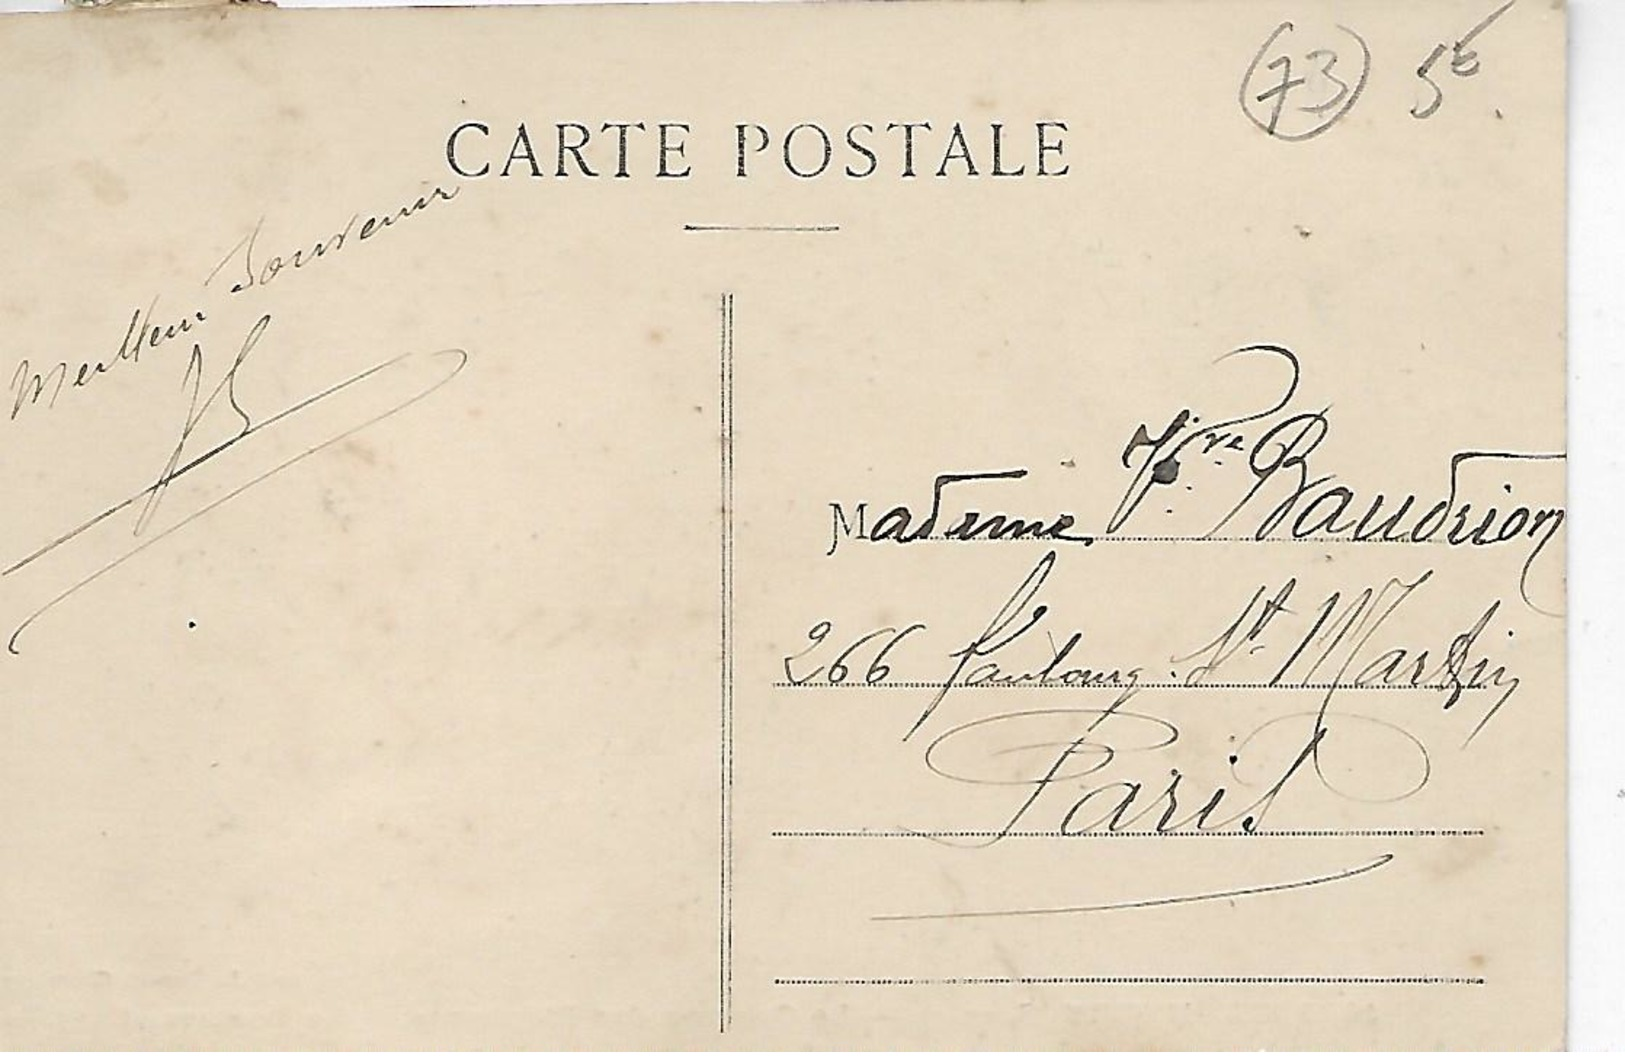 (73) 5€
CARTE POSTALE
Meilleur Souvenir
Madame Vve Baudrion
266 faubourg St Martin
Paris